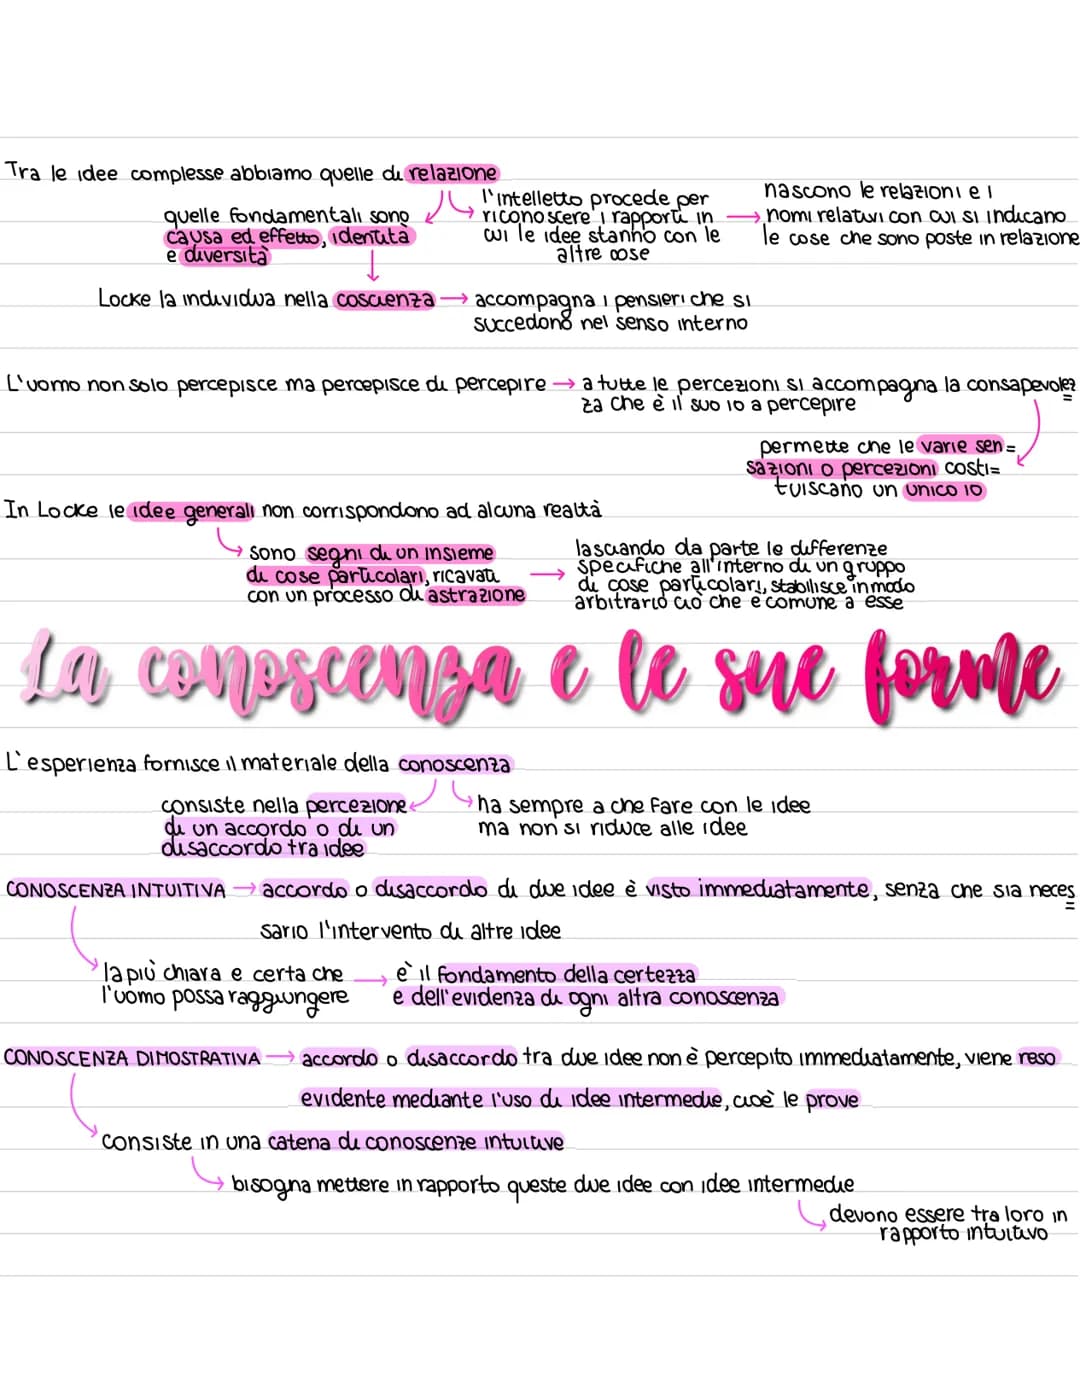 Tra le idee complesse abbiamo quelle di relazione
quelle fondamentali sono
causa ed effetto, identità
e diversità
l'intelletto procede per
riconoscere i rapporti in
cui le idee stanno con le
altre cose
nascono le relazioni e i
nomi relativi con cui si indicano
le cose che sono poste in relazione
Locke la individua nella coscienza → accompagna i pensieri che si
succedono nel senso interno
L'uomo non solo percepisce ma percepisce di percepire → a tutte le percezioni si accompagna la consapevolez=
za che è il suo io a percepire
permette che le varie sen=
sazioni o percezioni costi=
tuiscano un unico io
In Locke le idee generali non corrispondono ad alcuna realtà
sono segni di un insieme
di cose particolari, ricavati
con un processo di astrazione
lasciando da parte le differenze
specifiche all'interno di un gruppo
di cose particolari, stabilisce in modo
arbitrario ciò che è comune a esse
La conoscenza e le sue forme
L'esperienza fornisce il materiale della conoscenza
consiste nella percezione
di un accordo o di un
disaccordo tra idee
ha sempre a che fare con le idee
ma non si riduce alle idee
CONOSCENZA INTUITIVA → accordo o disaccordo di due idee è visto immediatamente, senza che sia neces=
sario l'intervento di altre idee
la più chiara e certa che
l'uomo possa raggiungere
è il fondamento della certezza
e dell'evidenza di ogni altra conoscenza
CONOSCENZA DIMOSTRATIVA → accordo o disaccordo tra due idee non è percepito immediatamente, viene reso
evidente mediante l'uso di idee intermedie, cioè le prove
consiste in una catena di conoscenze intuitive
bisogna mettere in rapporto queste due idee con idee intermedie
devono essere tra loro in
rapporto intuitivo